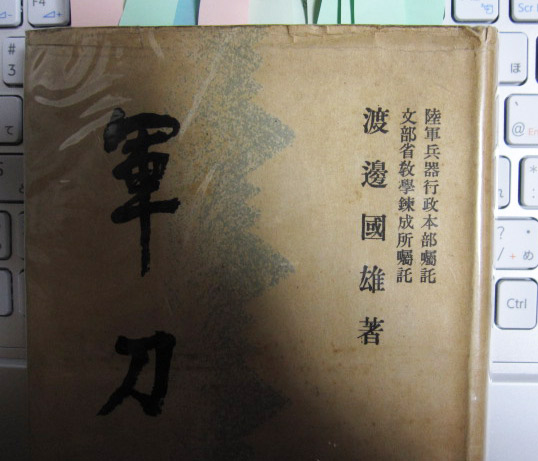 陸軍兵器行政本部囑託
文部省敎學鍊成所囑託
渡邊國雄著
軍刀
F4
#
3
て
ほ
@
*
:
?
め
Ctrl